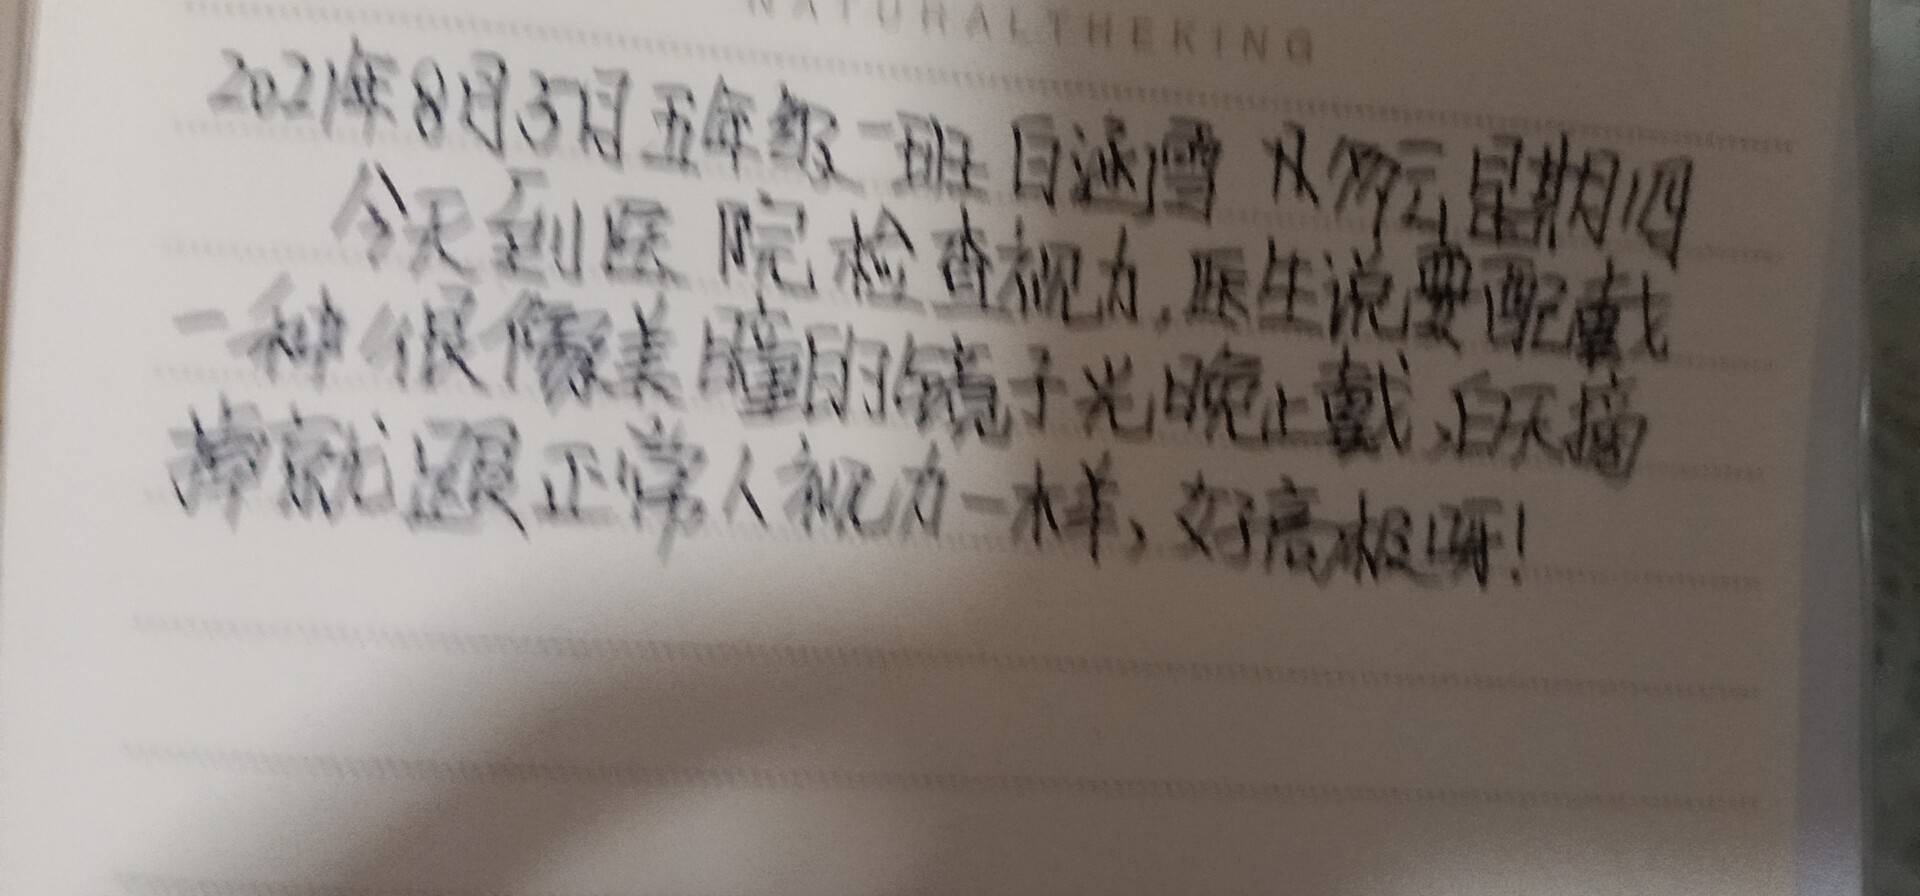 NATURALTHEKING
2021年8月5日五年级二班 星期四
今天到医院检查视力,医生说要配戴
一种很像美瞳的镜子光晚上戴、白天摘
掉就跟正常人视力一样,好高极呀!